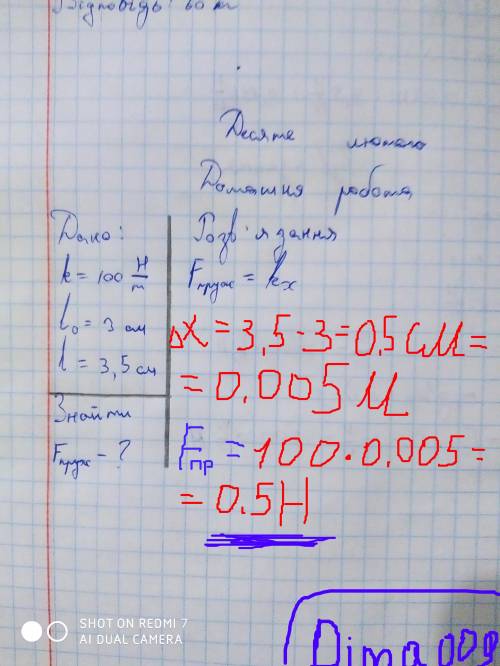 Відповідь: 60 м
Десяте лютого
Домашня робота
Дано:
k = 100 Н/m
l₀ = 3 см
l = 3,5 см
Знайти
Fпруж - ?
Розв'язання
Fпруж = kx
∆X = 3,5-3=0,5 СМ=
= 0.005 М
Fпр = 100·0.005=
= 0.5Н
Dima009
SHOT ON REDMI 7
AI DUAL CAMERA